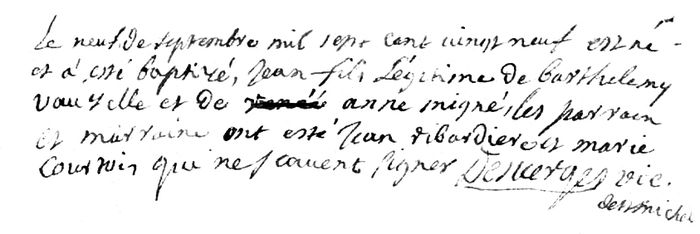 Le neuf de septembre mil sept cent vingt neuf est né
et a esté baptizé, Jean fils Légitime de barthelemy
vauzelle et de renée anne migné, les parrain
et marraine ont esté Jean ribardiere et marie
Courtois qui ne scavent signer Desverges vic.
de st michel